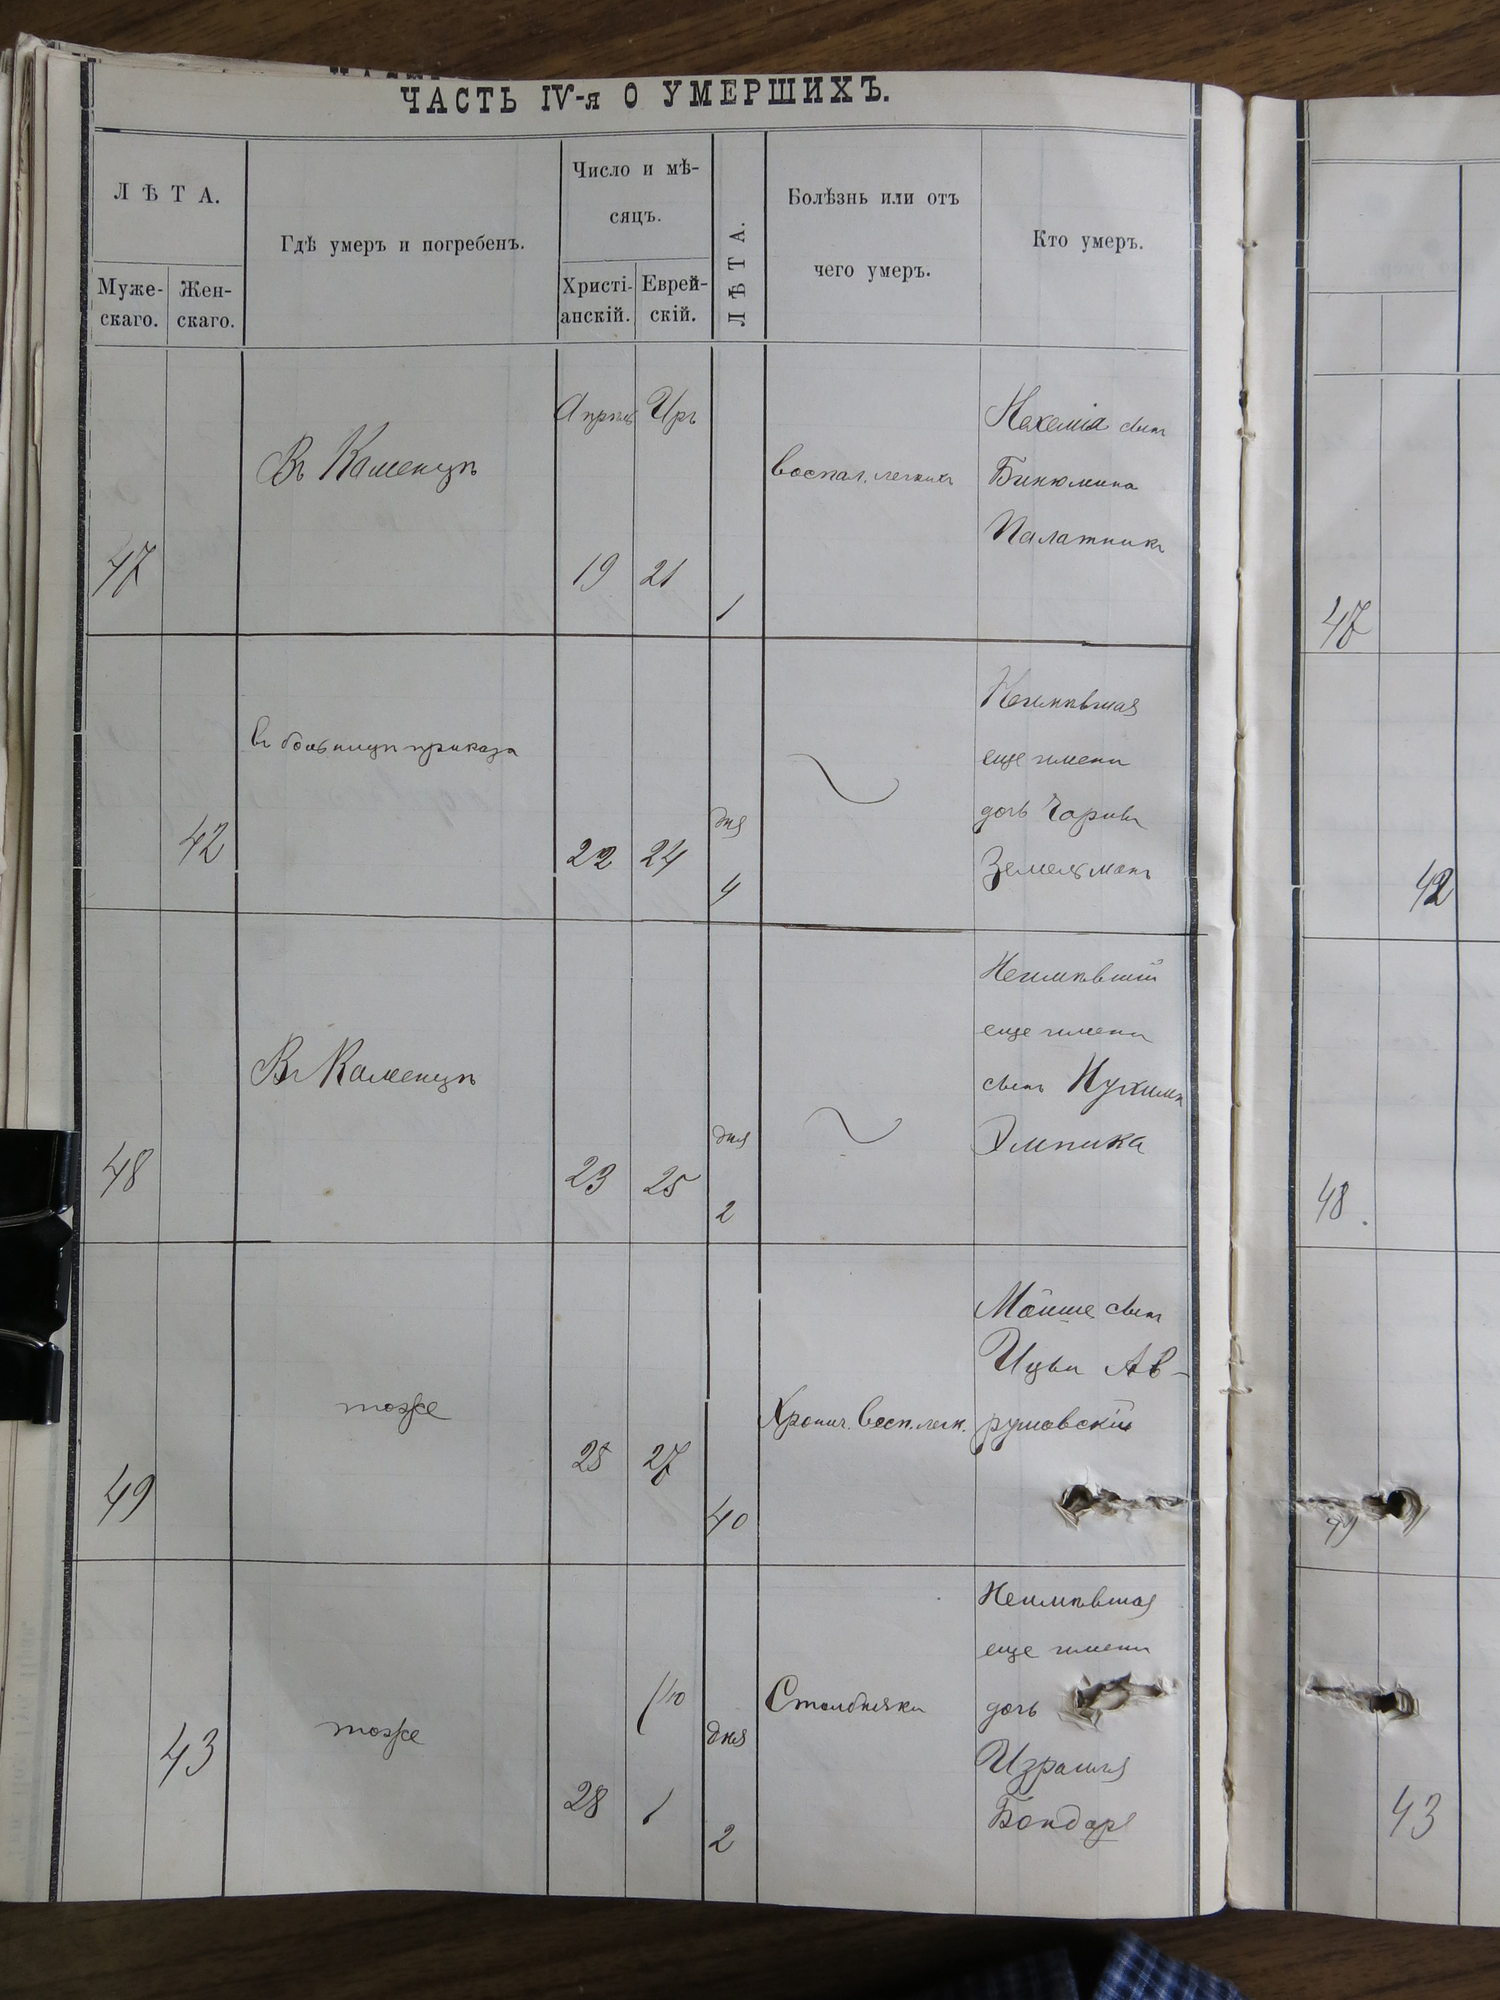 ЧАСТЬ IV-я О УМЕРШИХЪ.
ЛѢТА.
Муже-
скаго.
Жен-
скаго.
Гдѣ умеръ и погребенъ.
Число и мѣ-
сяцъ.
Христі-
анскій.
Еврей-
скій.
ЛѢТА.
Болѣзнь или отъ
чего умеръ.
Кто умеръ.
47
Въ Каменцѣ
Апрѣль
19
Иръ
21
1
воспал. легкихъ
Нехемія сынъ
Бинюмина
Палатникъ
42
въ больницѣ приказа
22
24
дня
4
Неимѣвшая
еще имени
дочь
Зельманъ
48
Въ Каменцѣ
23
25
дня
2
Неимѣвшій
еще имени
сынъ Нухима
49
тоже
25
27
40
Хронич. восп. легк.
Мойше сынъ
Ицки Ав-
43
тоже
28
1
дня
2
Столбняка
Неимѣвшая
еще имени
дочь
Израиля
Бондаря
47
42
48.
49
43